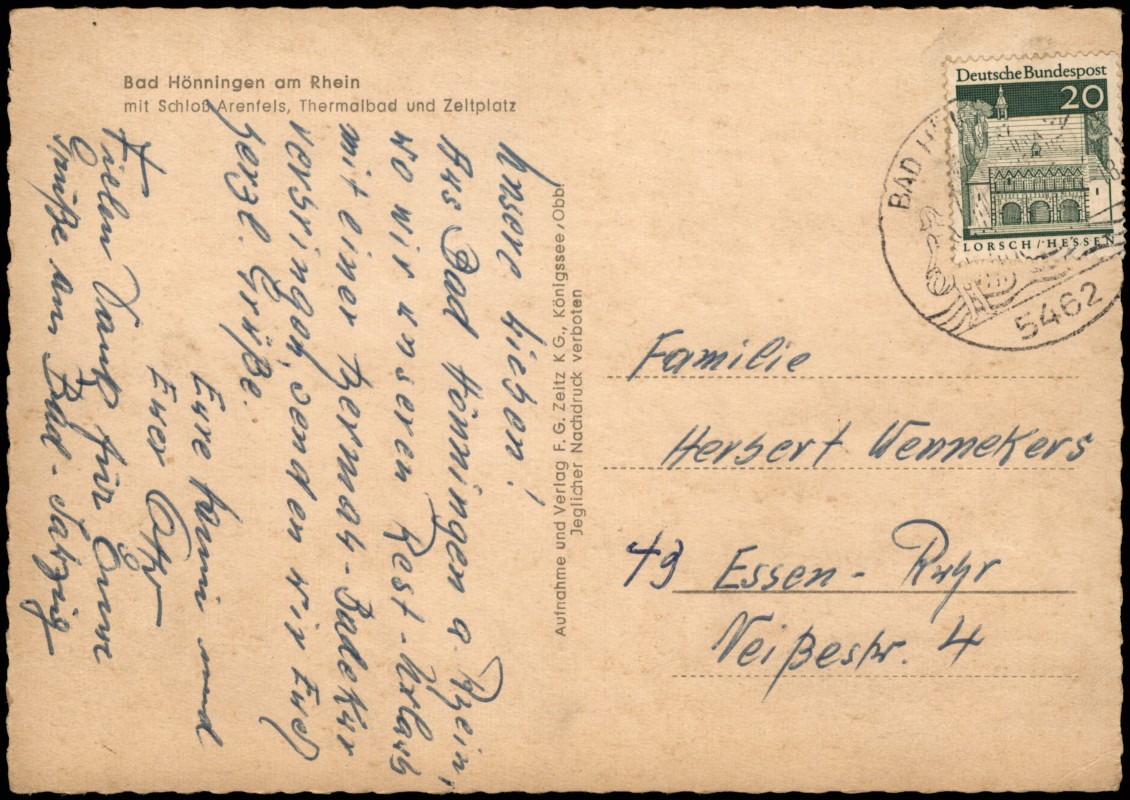 Bad Hönningen am Rhein
mit Schloß Arenfels, Thermalbad und Zeltplatz
Unsere Lieben!
Aus Bad Hönningen a. Rhein,
wo wir unseren Rest-Urlaub
mit einer Thermal-Badekur
verbringen, senden wir Euch
herzl. Grüße.
Eure und
Euer Otto
Vielen Dank für Eure
Grüße aus Bad-
Aufnahme und Verlag F. G. Zeitz KG., Königssee/Obb.
Jeglicher Nachdruck verboten
Deutsche Bundespost
20
LORSCH/HESSEN
BAD
5462
Familie
Herbert Wennekers
43 Essen-Ruhr
Neißestr. 4